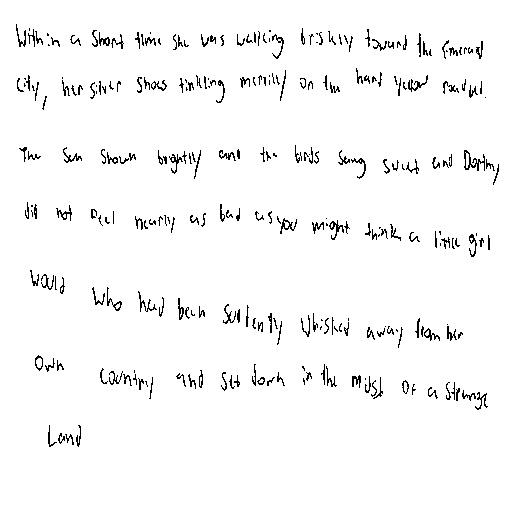 Within a short time she was walking briskly toward the Emerald
City, her silver shoes tinkling merrily on the hard yellow roadbed.
The sun shown brightly and the birds sang sweet and Dorthy
did not feel nearly as bad as you might think a little girl
would who had been suddenly whisked away from her
own country and set down in the midst of a strange
land